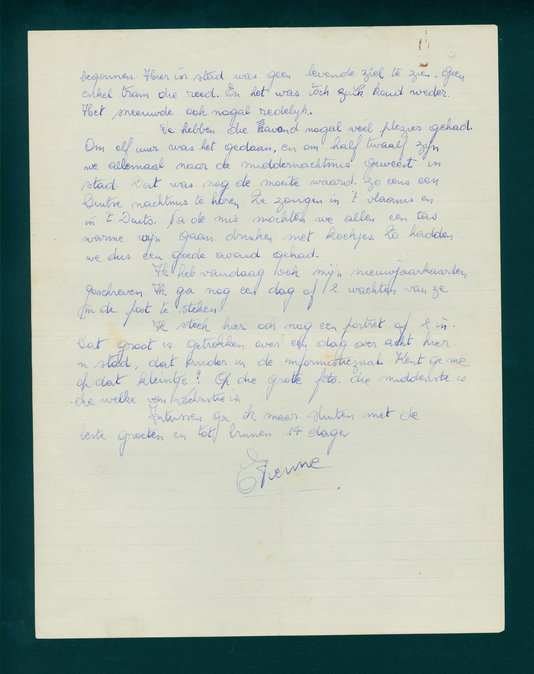 begonnen. Hier in stad was geen levende ziel te zien. Geen
enkel tram die reed. En het was toch zulk koud weder.
Het sneeuwde ook nogal redelijk.
We hebben die avond nogal veel plezier gehad.
Om elf uur was het gedaan, en om half twaalf zijn
we allemaal naar de middernachtmis geweest in
stad. Dat was nog de moeite waard. Zo eens een
Duitse nachtmis te horen. Ze zongen in 't vlaams en
in 't Duits. Na de mis mochten we allen een tas
warme wijn gaan drinken met koekjes. Zo hadden
we dus een goede avond gehad.
Ik heb vandaag ook mijn nieuwjaarkaarten
geschreven. Ik ga nog een dag of 2 wachten van ze
in de post te steken.
Ik steek hier ook nog een portret of 2 in.
Dat groot is getrokken over een dag over acht hier
in stad, dat ander in de informatiezaal. Kent ge me
op dat kleintje? Op die grote foto, die middelste is
die welke van
Intussen ga ik maar sluiten met de
beste groeten en tot binnen 14 dagen
Etienne